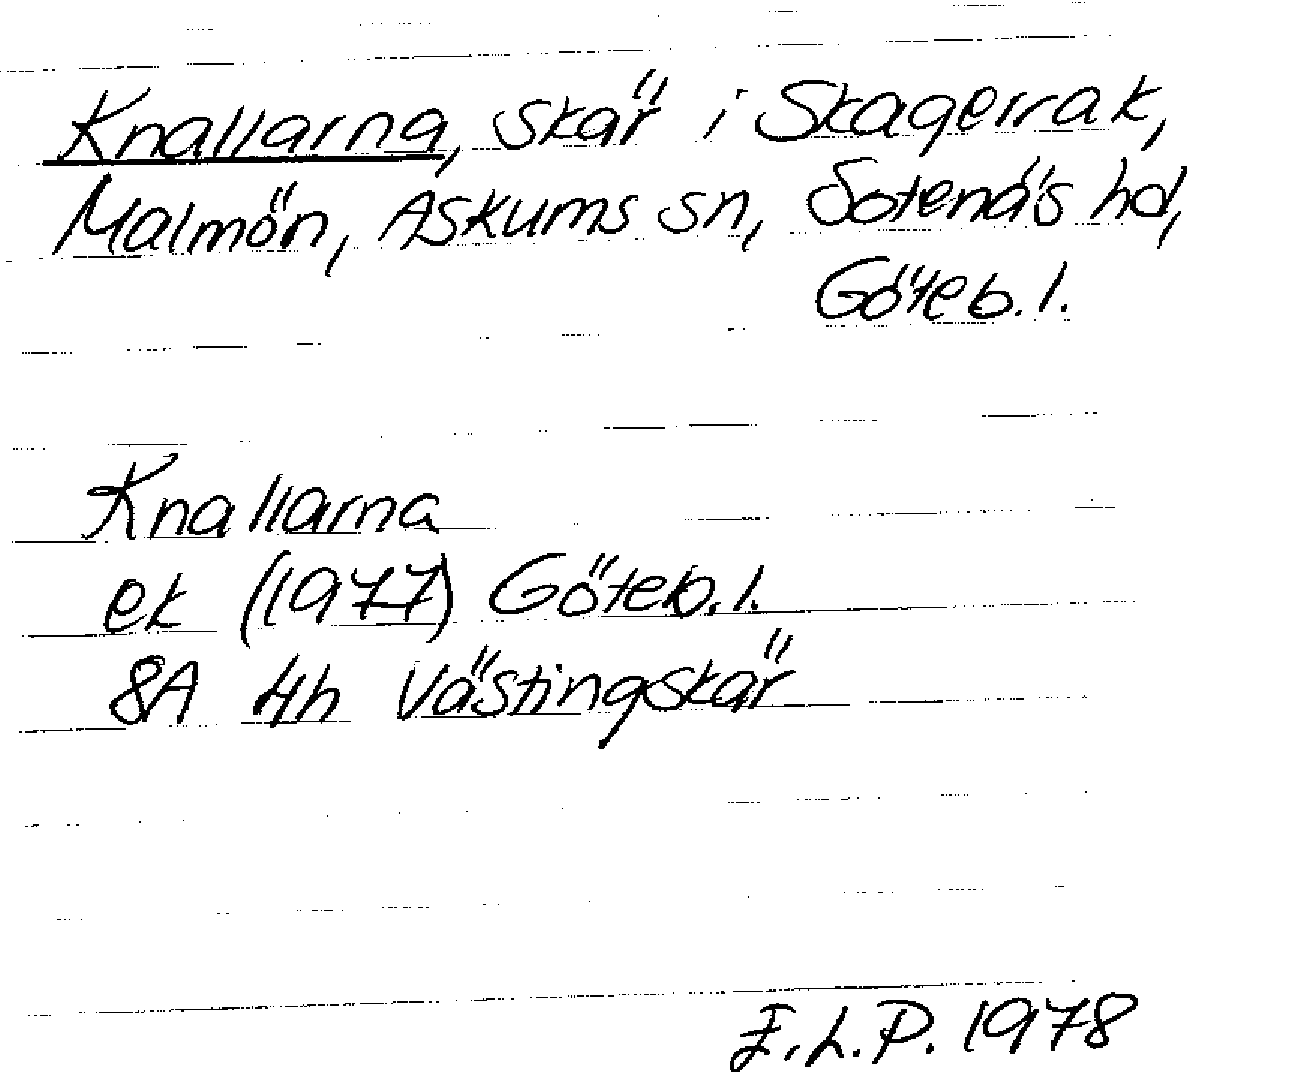 Knallarna, skär i Skagerrak,
Malmön, Askums sn, Sotenäs hd,
Göteb. l.
Knallarna
ek (1977) Göteb. l.
8A 4h Västingskär
E.L.P. 1978